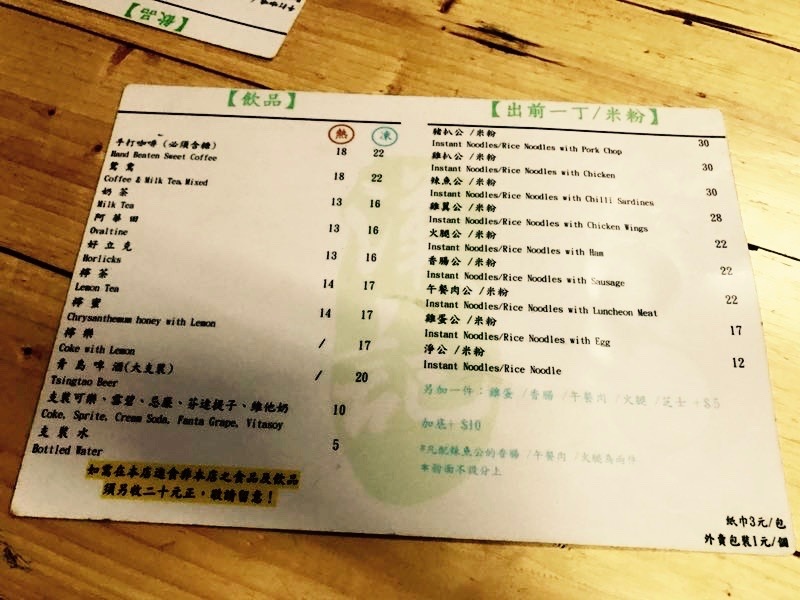 手打咖啡
【飲品】
【飲品】
熱 凍
手打咖啡(必須含糖) 18 22
Hand Beaten Sweet Coffee
鴛鴦 18 22
Coffee & Milk Tea Mixed
奶茶 13 16
Milk Tea
阿華田 13 16
Ovaltine
好立克 13 16
Horlicks
檸茶 14 17
Lemon Tea
檸蜜 14 17
Chrysanthemum honey with Lemon
檸樂 / 17
Coke with Lemon
青島啤酒(大支裝) / 20
Tsingtao Beer
支裝可樂、雲碧、忌廉、芬達提子、維他奶 10
Coke, Sprite, Cream Soda, Fanta Grape, Vitasoy
支裝水 5
Bottled Water
如需在本店進食非本店之食品及飲品
須另收二十元正，敬請留意！
【出前一丁/米粉】
豬扒公 /米粉 30
Instant Noodles/Rice Noodles with Pork Chop
雞扒公 /米粉 30
Instant Noodles/Rice Noodles with Chicken
辣魚公 /米粉 30
Instant Noodles/Rice Noodles with Chilli Sardines
雞翼公 /米粉 28
Instant Noodles/Rice Noodles with Chicken Wings
火腿公 /米粉 22
Instant Noodles/Rice Noodles with Ham
香腸公 /米粉 22
Instant Noodles/Rice Noodles with Sausage
午餐肉公 /米粉 22
Instant Noodles/Rice Noodles with Luncheon Meat
雞蛋公 /米粉 17
Instant Noodles/Rice Noodles with Egg
淨公 /米粉 12
Instant Noodles/Rice Noodle
另加一件：雞蛋 /香腸 /午餐肉 /火腿 /芝士 +$5
加底+ $10
*凡配辣魚公的香腸 /午餐肉 /火腿為兩件
*粉面不設分上
紙巾3元/包
外賣包裝1元/個